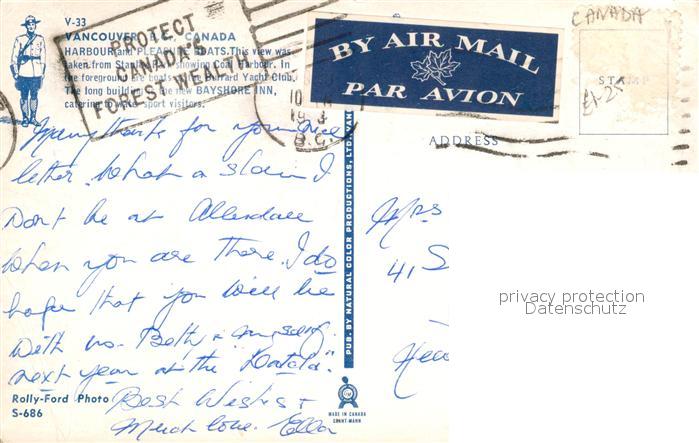 V-33
VANCOUVER, B.C., CANADA
HARBOUR and PLEASURE BOATS. This view was
taken from Stanley Park showing Coal Harbour. In
the foreground are boats of the Burrard Yacht Club.
The long building is the new BAYSHORE INN,
catering to water sport visitors.
PROTECT
CANADA'S
FOREST WEALTH
10
B.C.
BY AIR MAIL
PAR AVION
CANADA
STAMP
£1-25
ADDRESS
Many thanks for your nice
letter. What a shame I
Dont be at Allendale
When you are there. I do
hope that you will be
With us. Betty &
next year at the
Best Wishes +
Much love. Ella
Mrs
41 S
PUB. BY NATURAL COLOR PRODUCTIONS, LTD., VAN
Rolly-Ford Photo
S-686
MADE IN CANADA
GRANT-MANN
privacy protection
Datenschutz